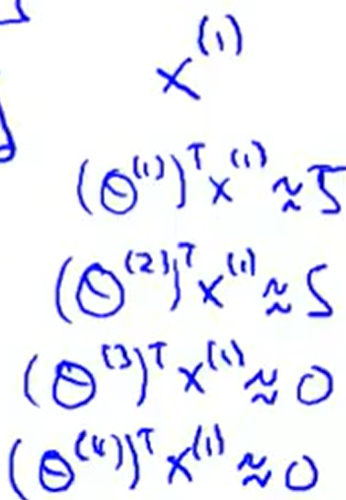 x^(1)
(Θ^(1))^T x^(1) ≈ 5
(Θ^(2))^T x^(1) ≈ 5
(Θ^(3))^T x^(1) ≈ 0
(Θ^(4))^T x^(1) ≈ 0